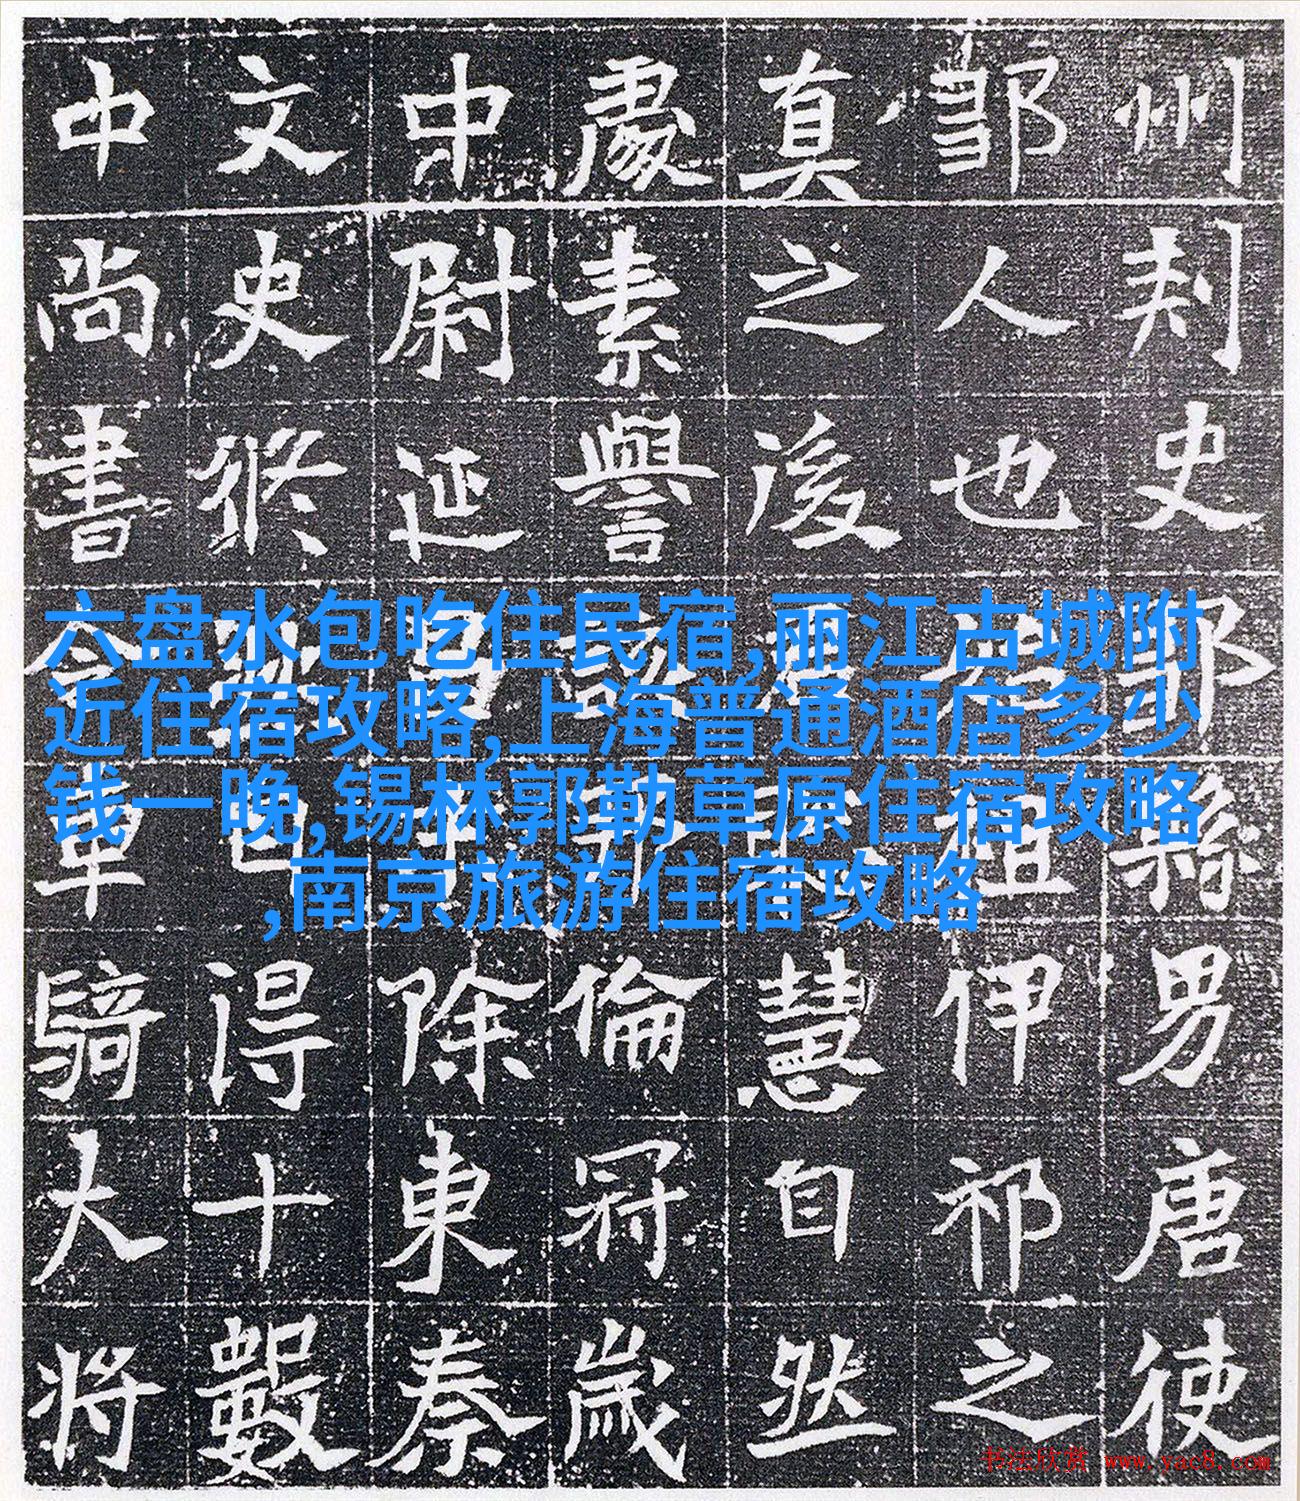 六盘水包吃住民宿,丽江古城附
近住宿攻略,上海普通酒店多少
钱一晚,锡林郭勒草原住宿攻略
,南京旅游住宿攻略
州刾史鄒縣男唐使
鄒人也祖伊祁之
真之後慧自然
處素譽倫冠歲
中尉延昌中除東秦
文史也得十數
中尚書令車騎大將
书法欣赏 www.yac8.com